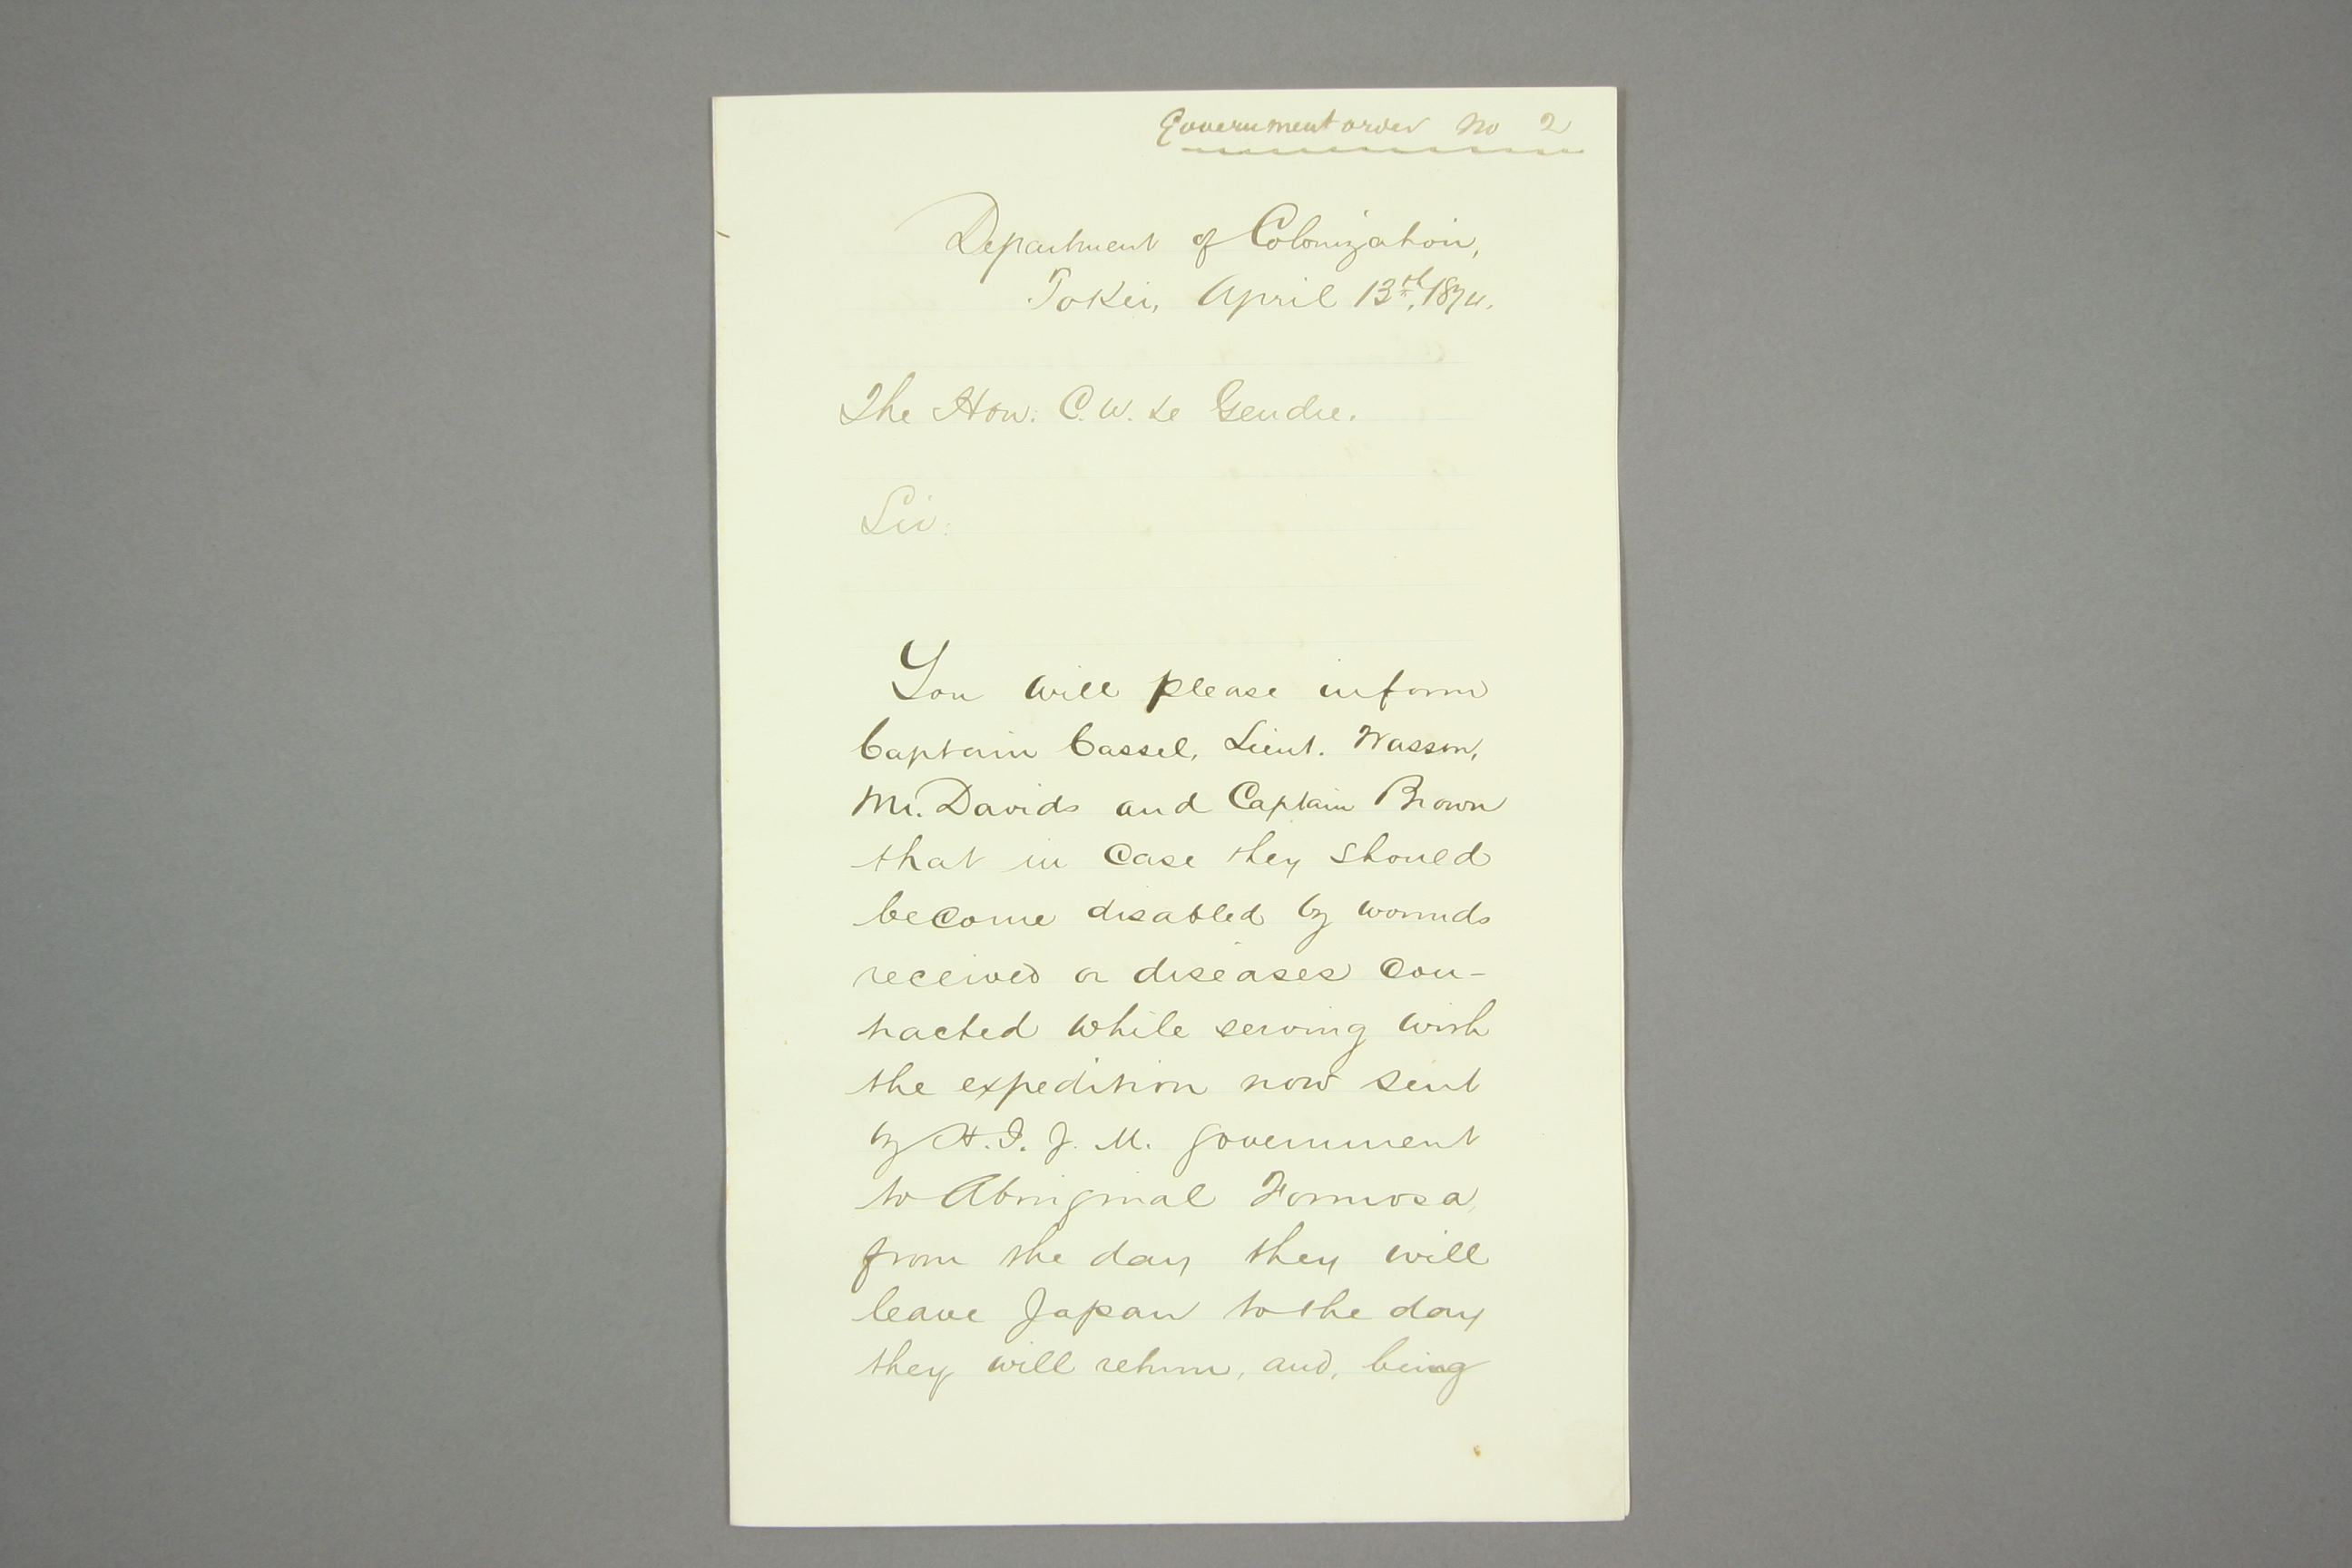 Government order No 2
Department of Colonization,
Tokei, April 13th, 1874.
The Hon: C. W. Le Gendre.
Sir:
You will please inform
Captain Cassel, Lieut. Wasson,
Mr. Davids and Captain Brown
that in case they should
become disabled by wounds
received or diseases con-
tracted while serving with
the expedition now sent
by H. I. J. M. government
to Aboriginal Formosa,
from the day they will
leave Japan to the day
they will return, and, being